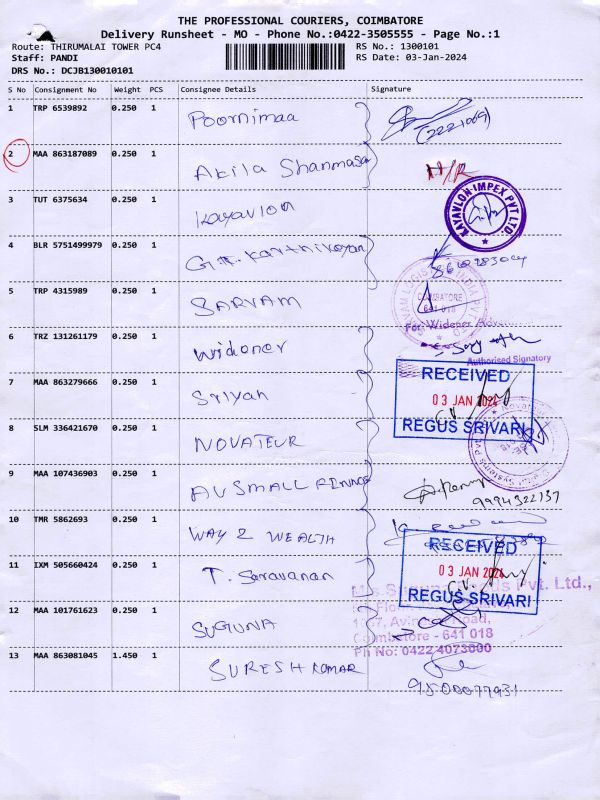 THE PROFESSIONAL COURIERS, COIMBATORE
Delivery Runsheet - MO - Phone No.:0422-3505555 - Page No.:1
Route: THIRUMALAI TOWER PC4
RS No.: 1300101
Staff: PANDI
RS Date: 03-Jan-2024
DRS No.: DCJB130010101
S No Consignment No Weight PCS Consignee Details Signature
1 TRP 6539892 0.250 1 Poornimaa
2 MAA 863187089 0.250 1 Akila Shanmasa H/R
3 TUT 6375634 0.250 1 Kayavlon
KAYAVLON IMPEX PVT LTD.
4 BLR 5751499979 0.250 1 G.K. Karthikeyan
5 TRP 4315989 0.250 1 SARVAM
COIMBATORE
641 018
For Widener
6 TRZ 131261179 0.250 1 Widener
Authorised Signatory
7 MAA 863279666 0.250 1 Sriyah
RECEIVED
03 JAN 2024
REGUS SRIVARI
8 SLM 336421670 0.250 1 NOVATEUR
9 MAA 107436903 0.250 1 AU SMALL FINNCE
9994322137
10 TMR 5862693 0.250 1 WAY 2 WEALTH
RECEIVED
11 IXM 505660424 0.250 1 T. Saravanan
03 JAN 2024
REGUS SRIVARI
Pvt. Ltd.,
12 MAA 101761623 0.250 1 SUGUNA
Road,
Coimbatore - 641 018
Ph No: 0422 4073000
13 MAA 863081045 1.450 1 SURESH KUMAR
9500077931